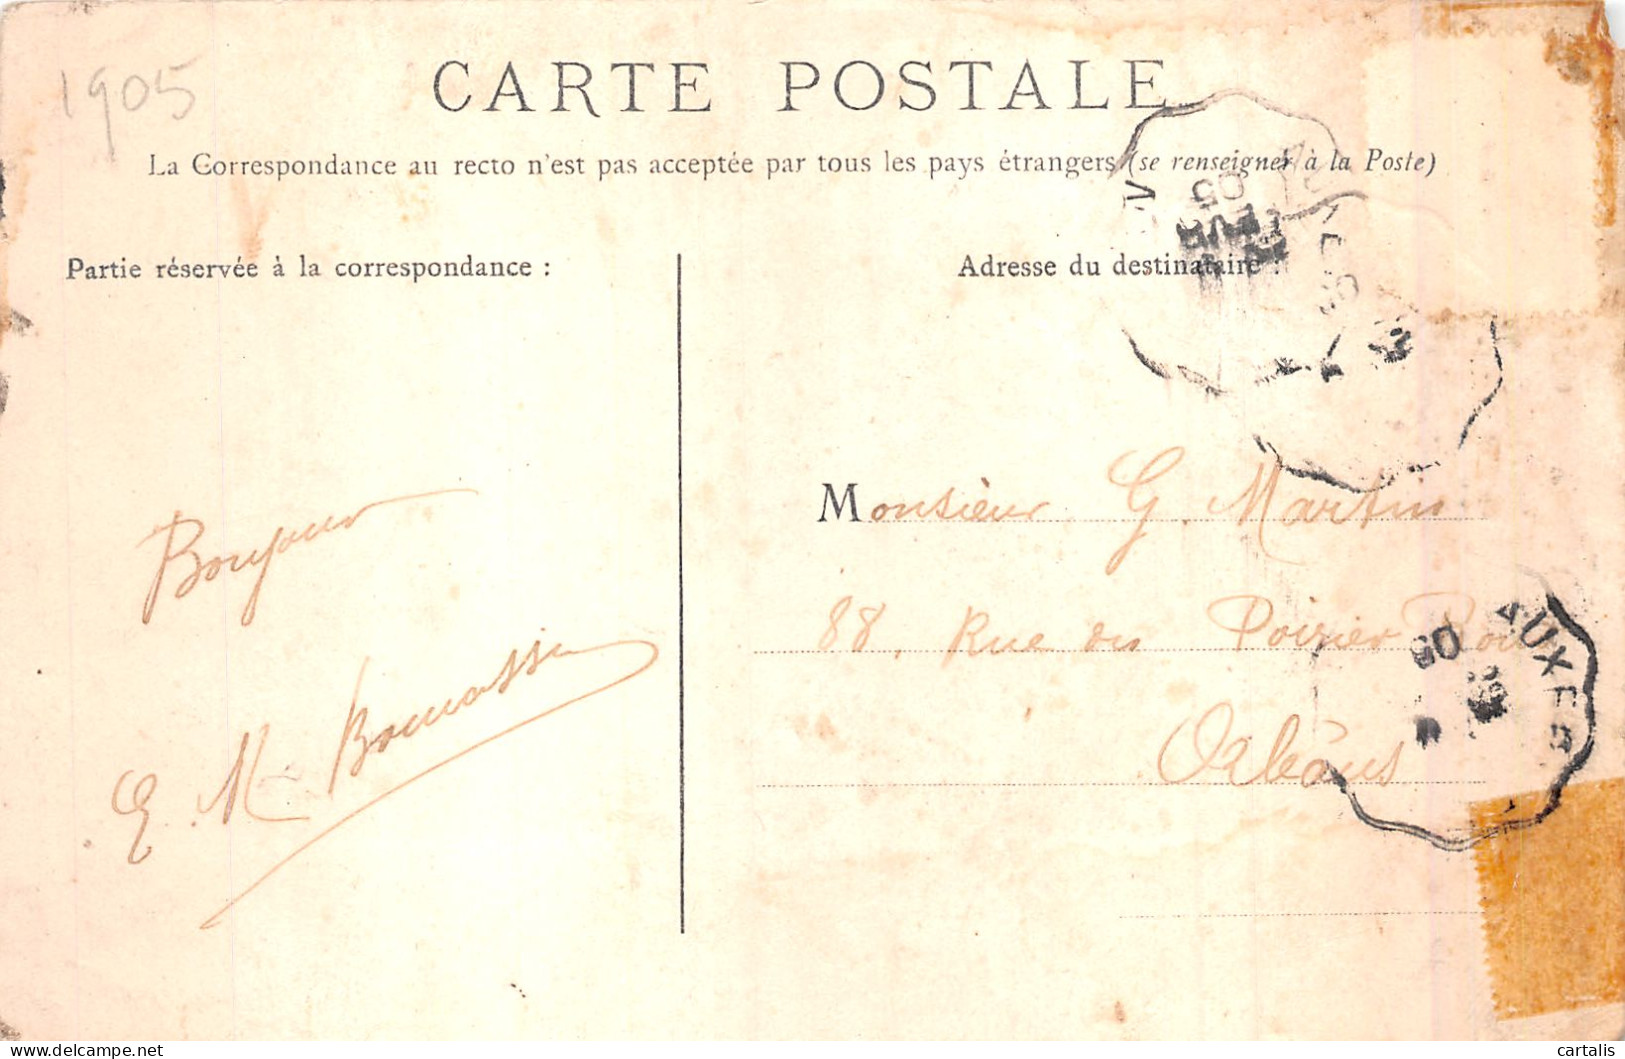 1905
CARTE POSTALE
La Correspondance au recto n'est pas acceptée par tous les pays étrangers (se renseigner à la Poste)
Partie réservée à la correspondance :
Adresse du destinataire :
05
Monsieur G. Martin
88, Rue du Poirier Rond
Orléans
Bonjour
E. M.
AUXER
05
delcampe.net
cartalis